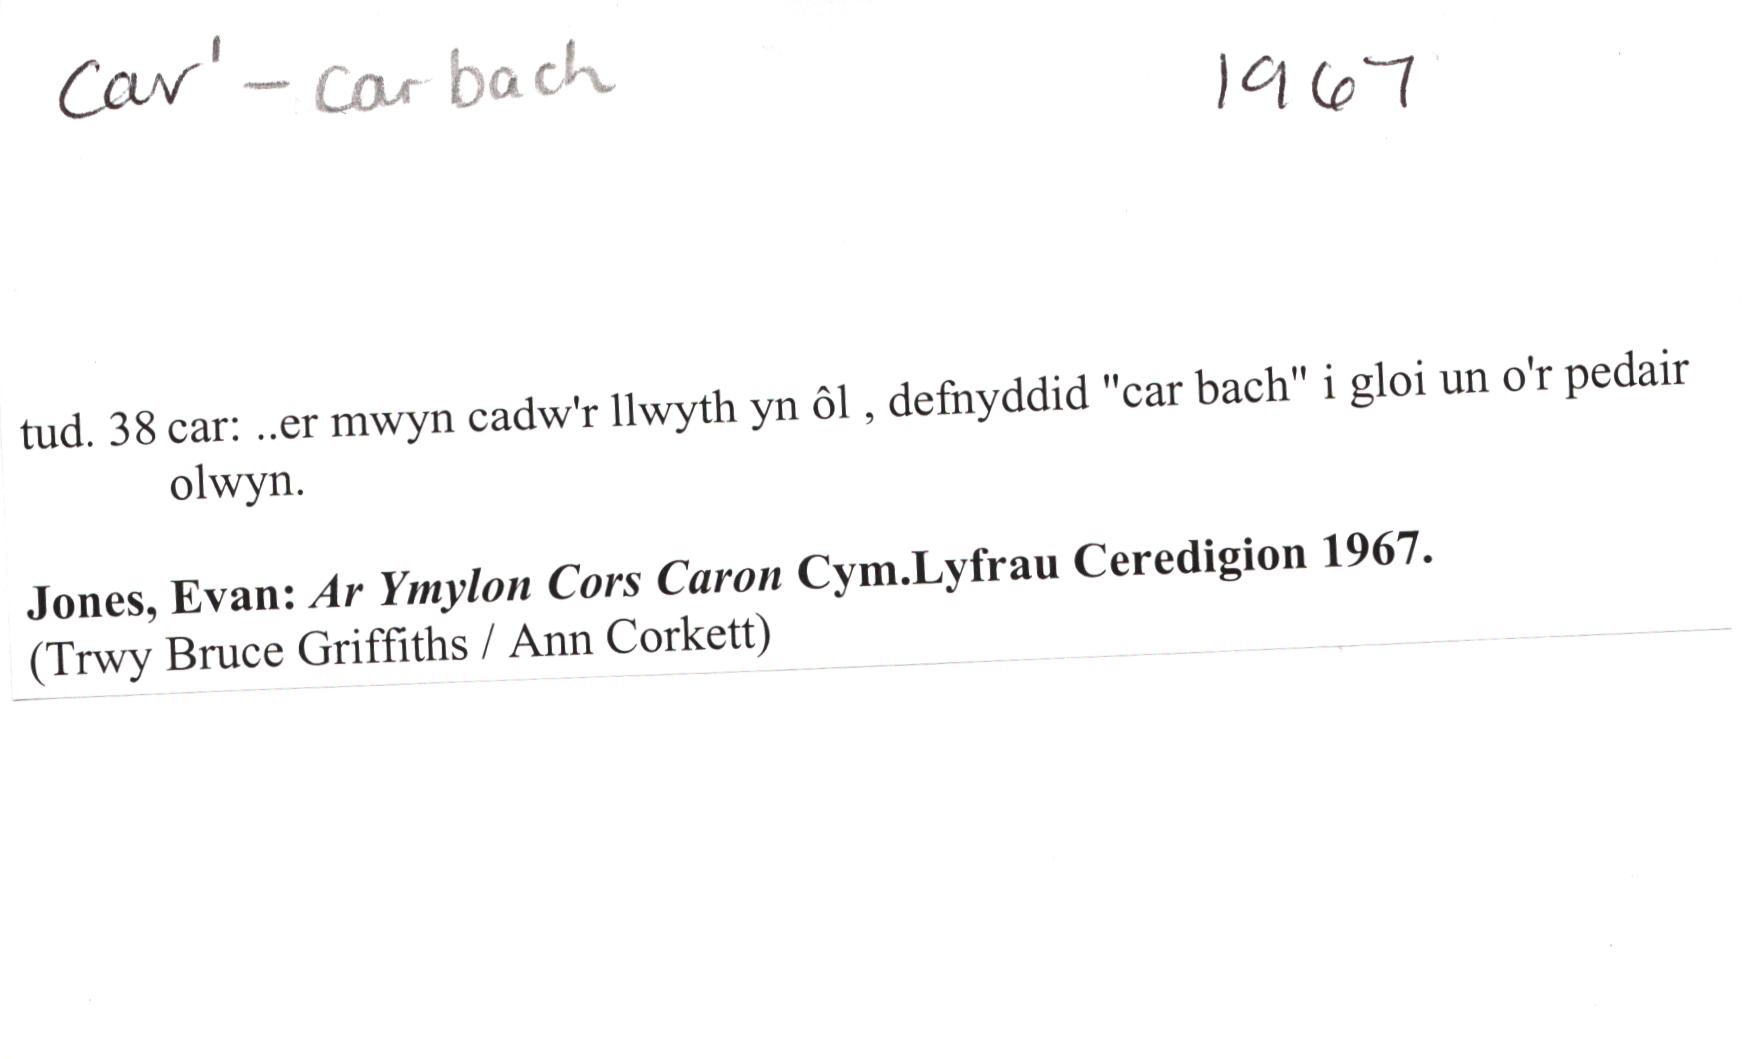 car' - car bach 1967
tud. 38 car: ..er mwyn cadw'r llwyth yn ôl , defnyddid "car bach" i gloi un o'r pedair
olwyn.
Jones, Evan: Ar Ymylon Cors Caron Cym.Lyfrau Ceredigion 1967.
(Trwy Bruce Griffiths / Ann Corkett)